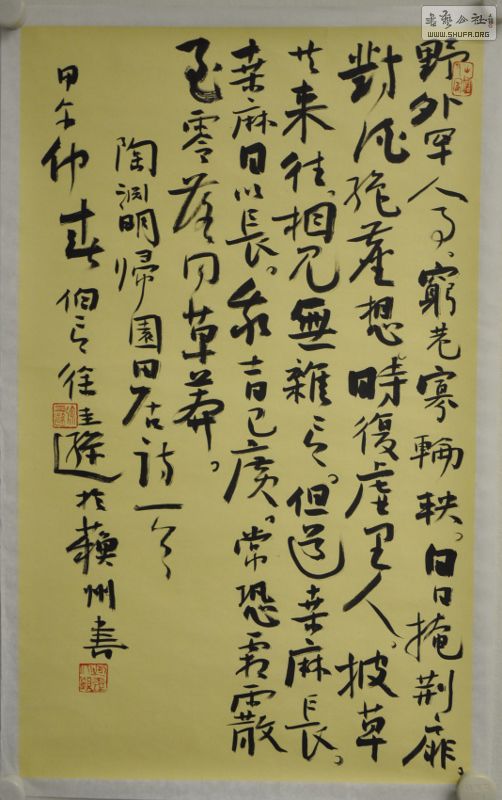 書藝公社
WWW.SHUFA.ORG
野外罕人事、窮巷寡輪鞅。白日掩荆扉。
對酒絶塵想時復虚里人。披草
共来往。相見無雜言。但道桑麻長。
桑麻日以長。我土日已廣。常恐霜霰
至零落同草莽。
陶渕明歸園田居詩一首
甲午仲春伯言徐圭遜於蘓州書